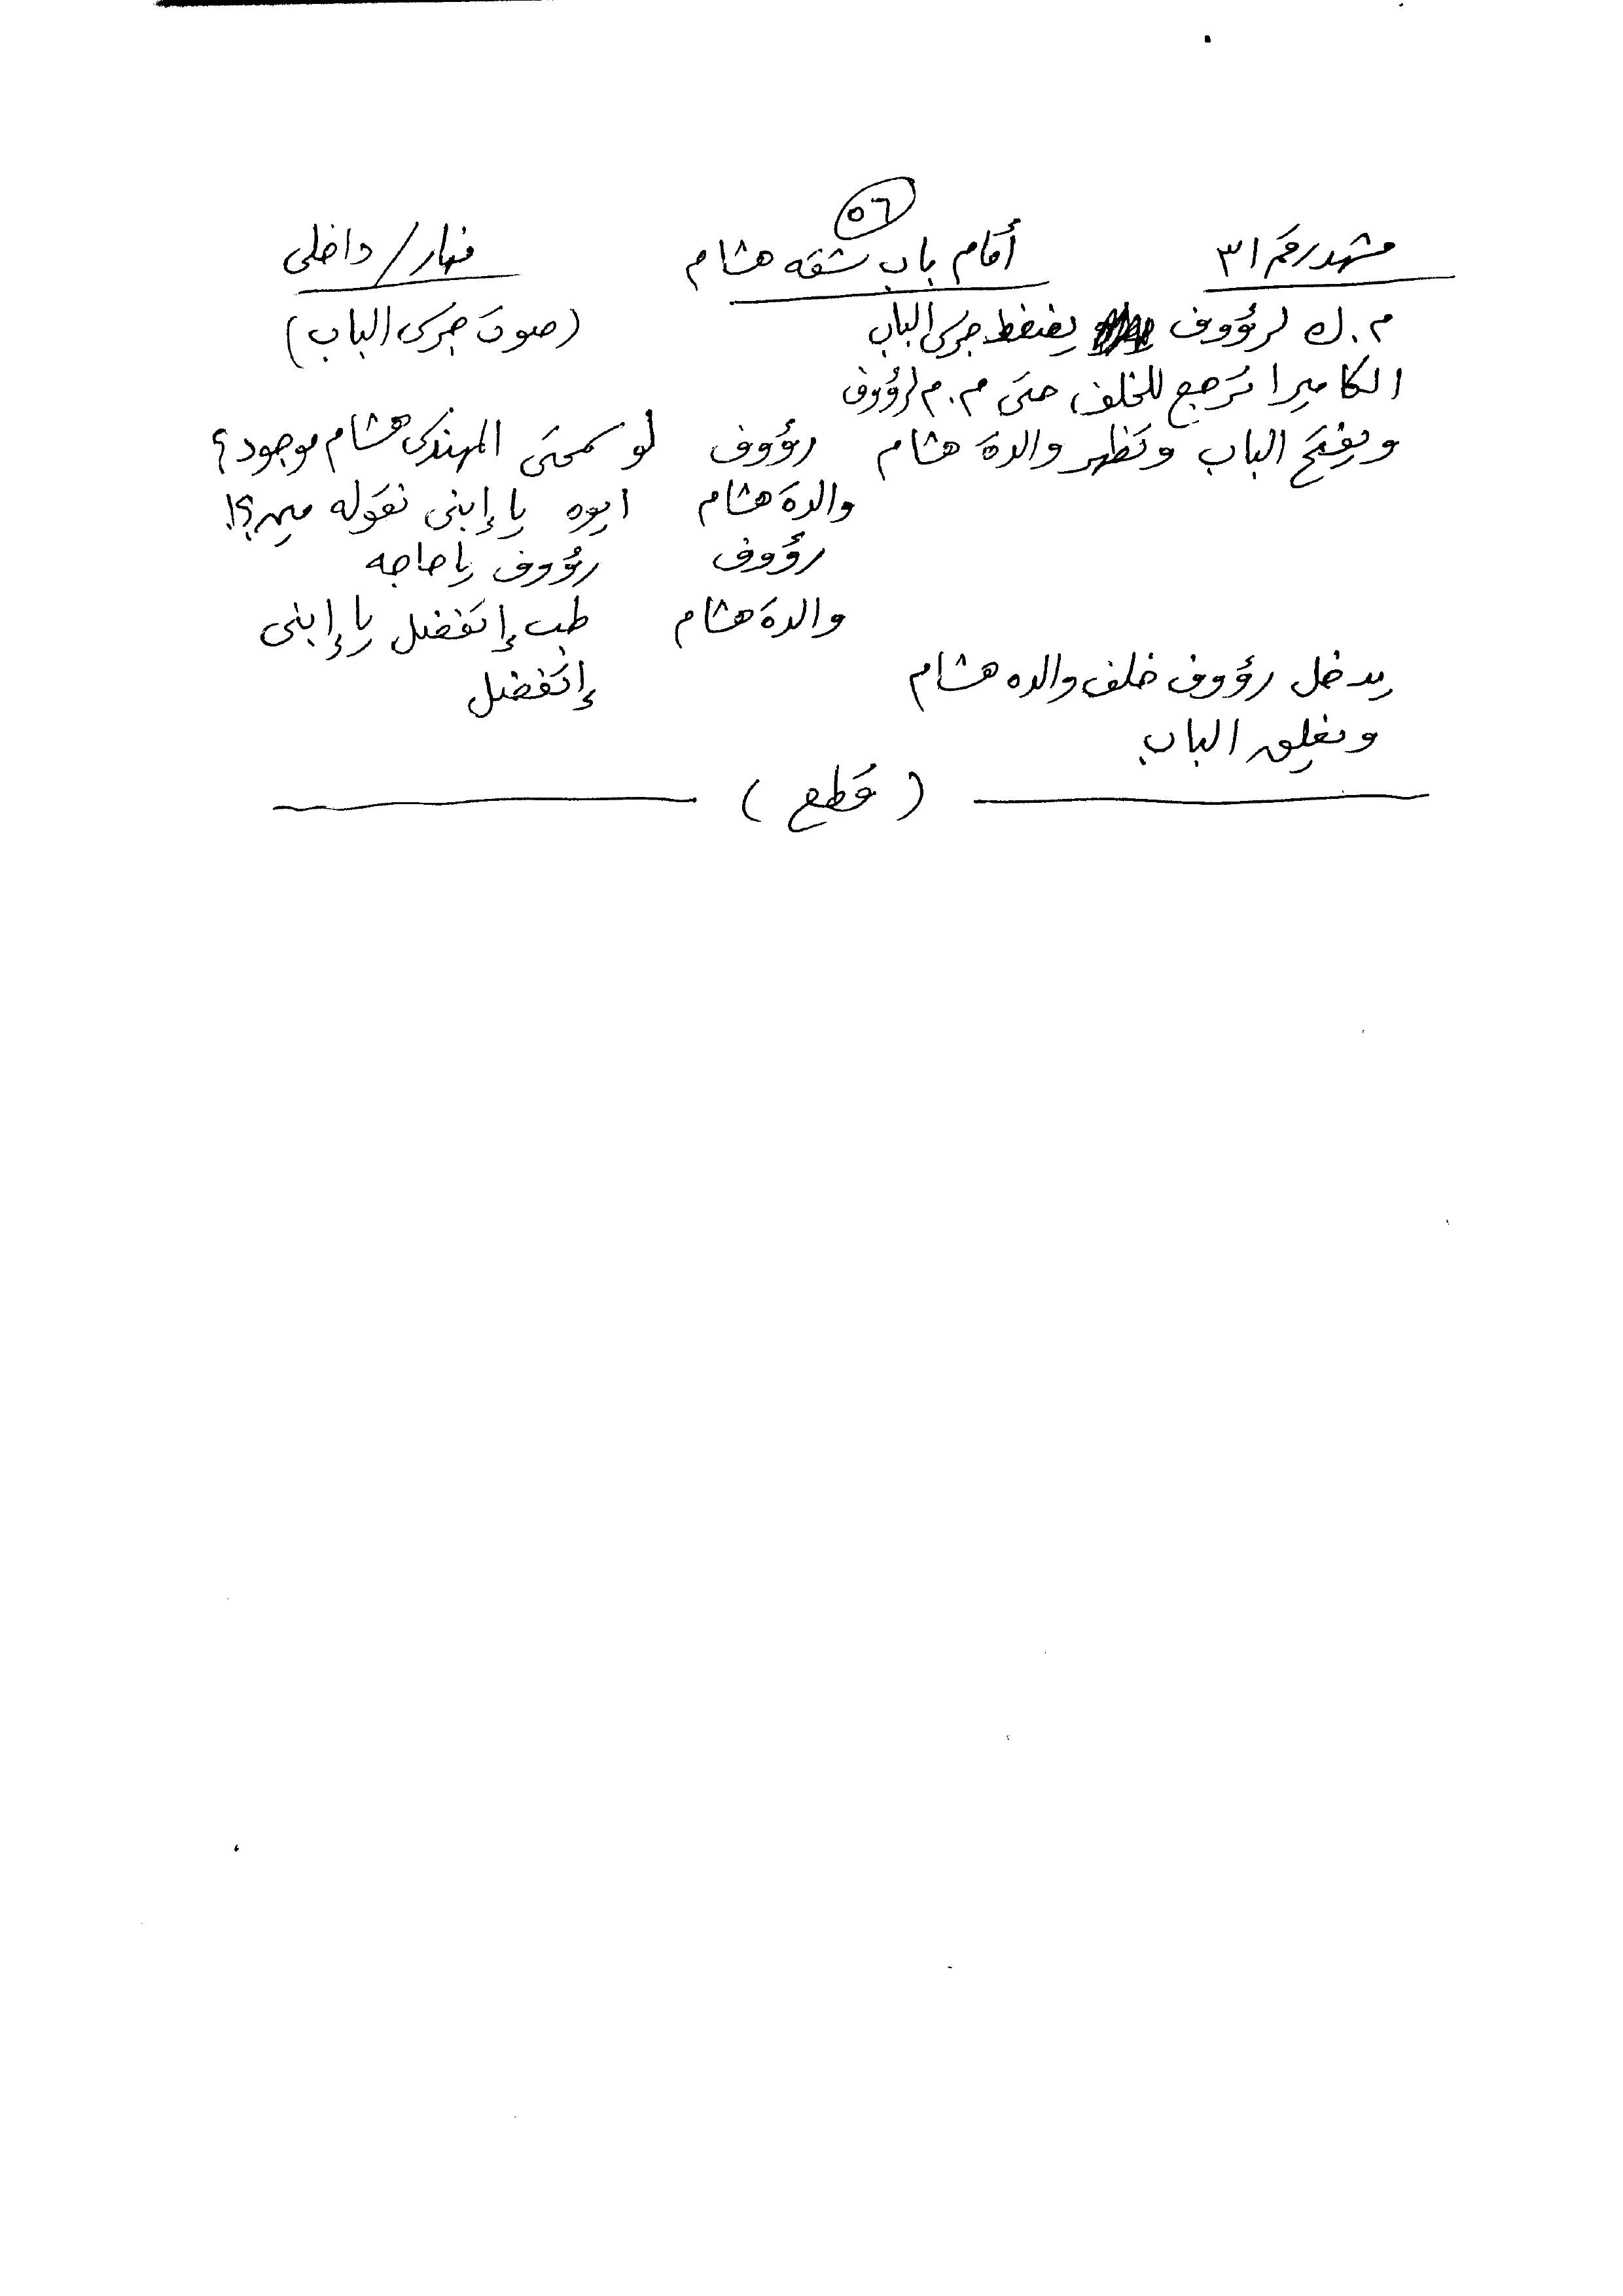 ٥٦
مشهد رقم ٣١ أمام باب شقه هشام نهار / داخلى
م . ك لرؤوف يضغط جرس الباب (صوت جرس الباب)
الكاميرا ترجع للخلف حتى م . م لرؤوف
ويفتح الباب وتظهر والدة هشام رؤوف لو سمحتى المهندس هشام موجود ؟
والدة هشام ايوه يا إبنى نقوله مين ؟!
رؤوف رؤوف يا حاجه
والدة هشام طب إتفضل يا إبنى
يدخل رؤوف خلف والده هشام إتفضل
وتغلق الباب
( قطع )